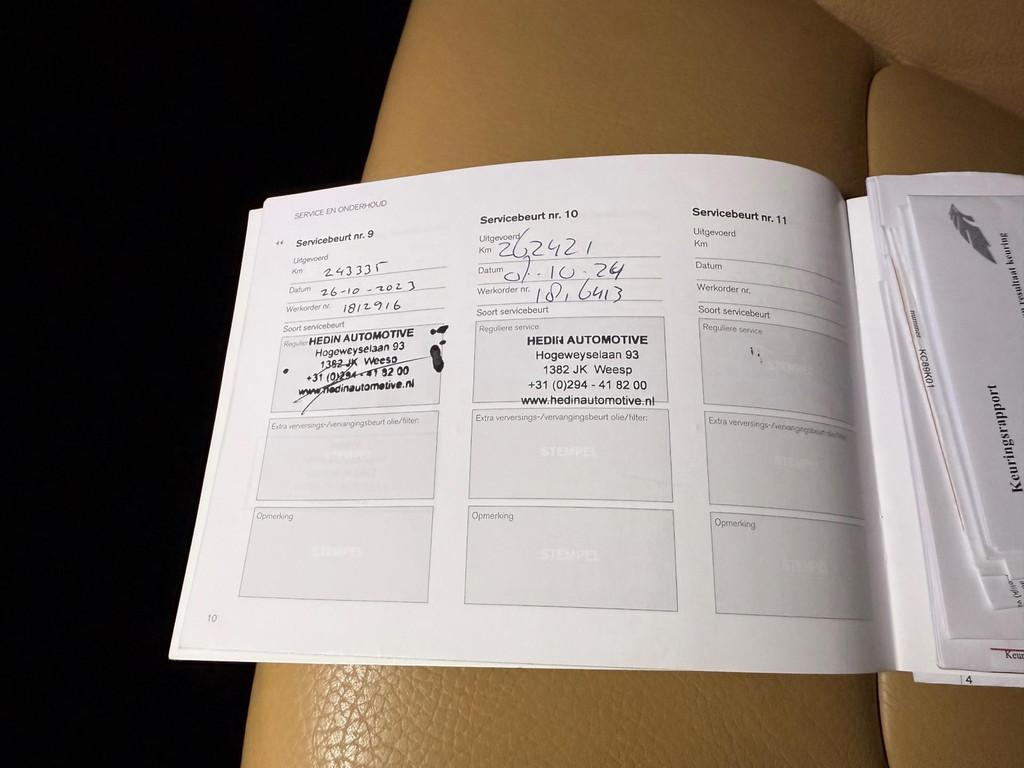 SERVICE EN ONDERHOUD
Servicebeurt nr. 9
Uitgevoerd
Km 243335
Datum 26-10-2023
Werkorder nr. 1812916
Soort servicebeurt
HEDIN AUTOMOTIVE
Hogeweyselaan 93
1382 JK Weesp
+31 (0)294 - 41 82 00
www.hedinautomotive.nl
Extra verversings-/vervangingsbeurt olie/filter:
STEMPEL
Opmerking
STEMPEL
10
Servicebeurt nr. 10
Uitgevoerd
Km 262421
Datum -10-24
Werkorder nr.
Soort servicebeurt
Reguliere service
HEDIN AUTOMOTIVE
Hogeweyselaan 93
1382 JK Weesp
+31 (0)294 - 41 82 00
www.hedinautomotive.nl
Extra verversings-/vervangingsbeurt olie/filter:
STEMPEL
Opmerking
STEMPEL
Servicebeurt nr. 11
Uitgevoerd
Km
Datum
Werkorder nr.
Soort servicebeurt
Reguliere service
Extra verversings-/vervangingsbeurt olie/filter:
Opmerking
STEMPEL
Keuringsrapport
resultaat keuring
4